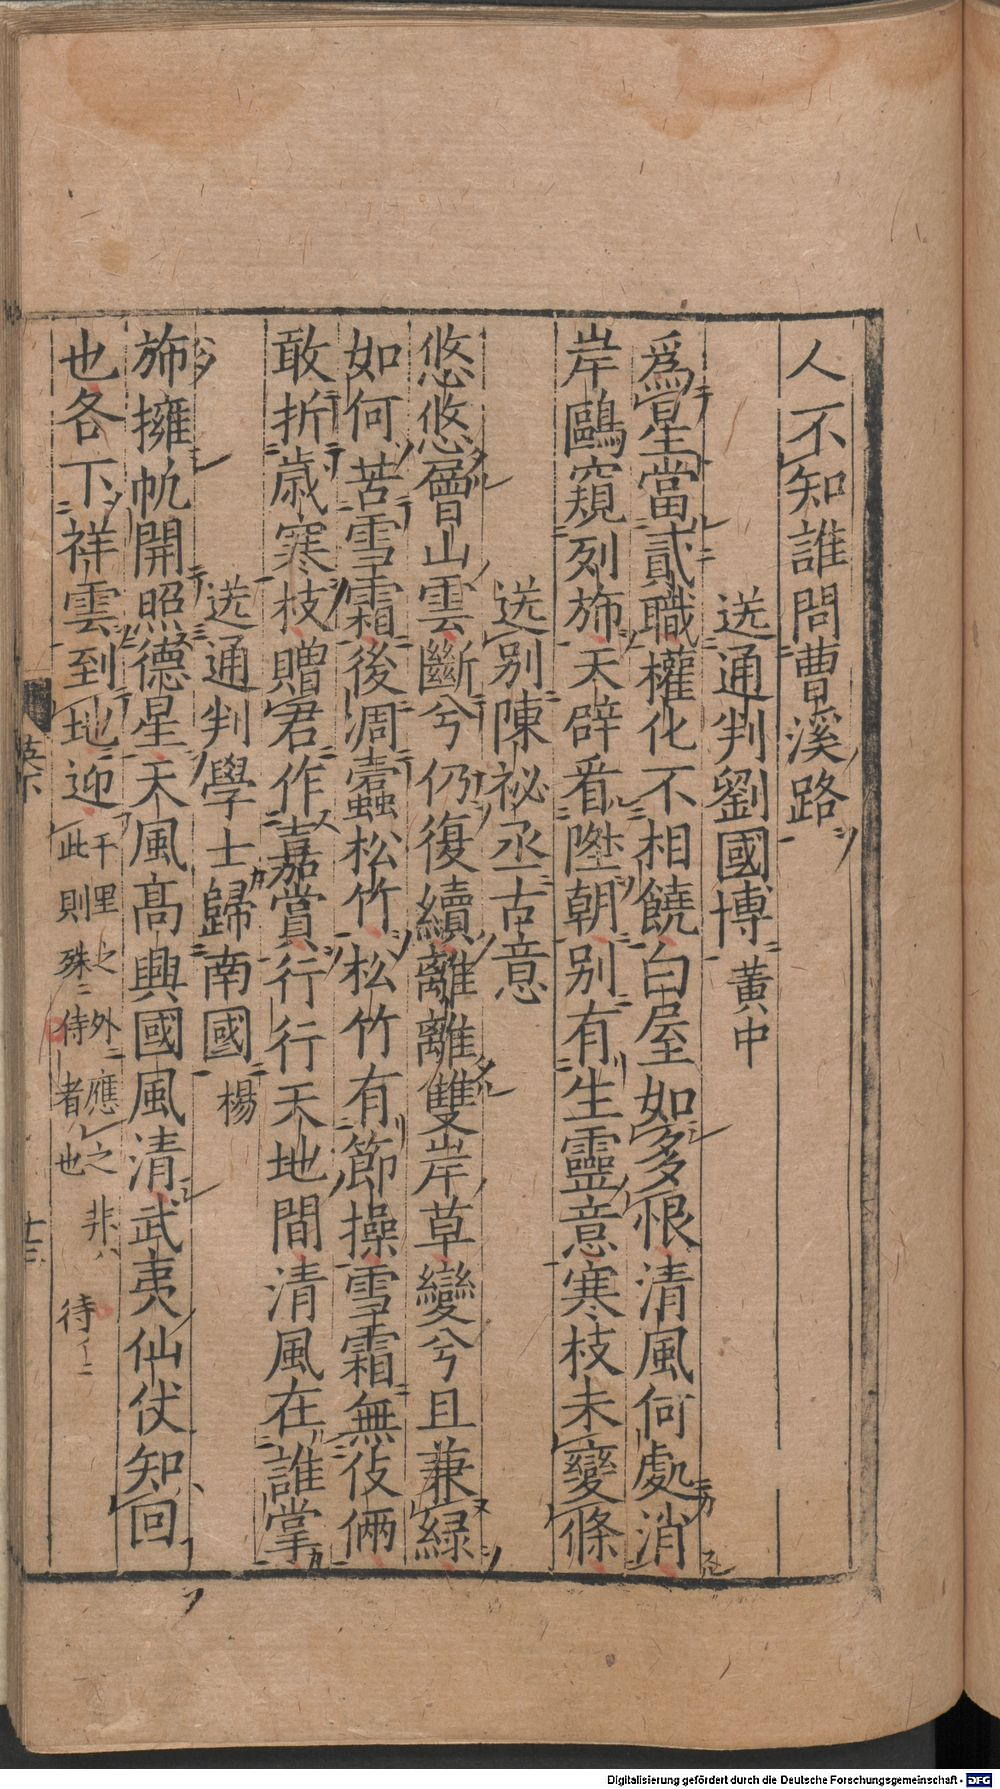 人不知誰問曹溪路
送通判劉國博 黃中
爲星當貳職權化不相饒白屋如多恨清風何處消
岸鷗窺列斾天辟看陞朝別有生靈意寒枝未變條
送別陳祕丞古意
悠悠層山雲斷兮仍復續離離雙岸草變兮且兼綠
如何苦雪霜後凋蠹松竹松竹有節操雪霜無伎倆
敢折歲寒枝贈君作嘉賞行行天地間清風在誰掌
送通判學士歸南國 楊
斾擁帆開照德星天風高興國風清武夷仙伏知回
也各下祥雲到地迎
千里之外應之非
此則殊侍者也 待
Digitalisierung gefördert durch die Deutsche Forschungsgemeinschaft - DFG